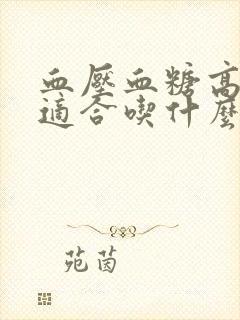 血壓血糖高
適合喫什麼
苑茵